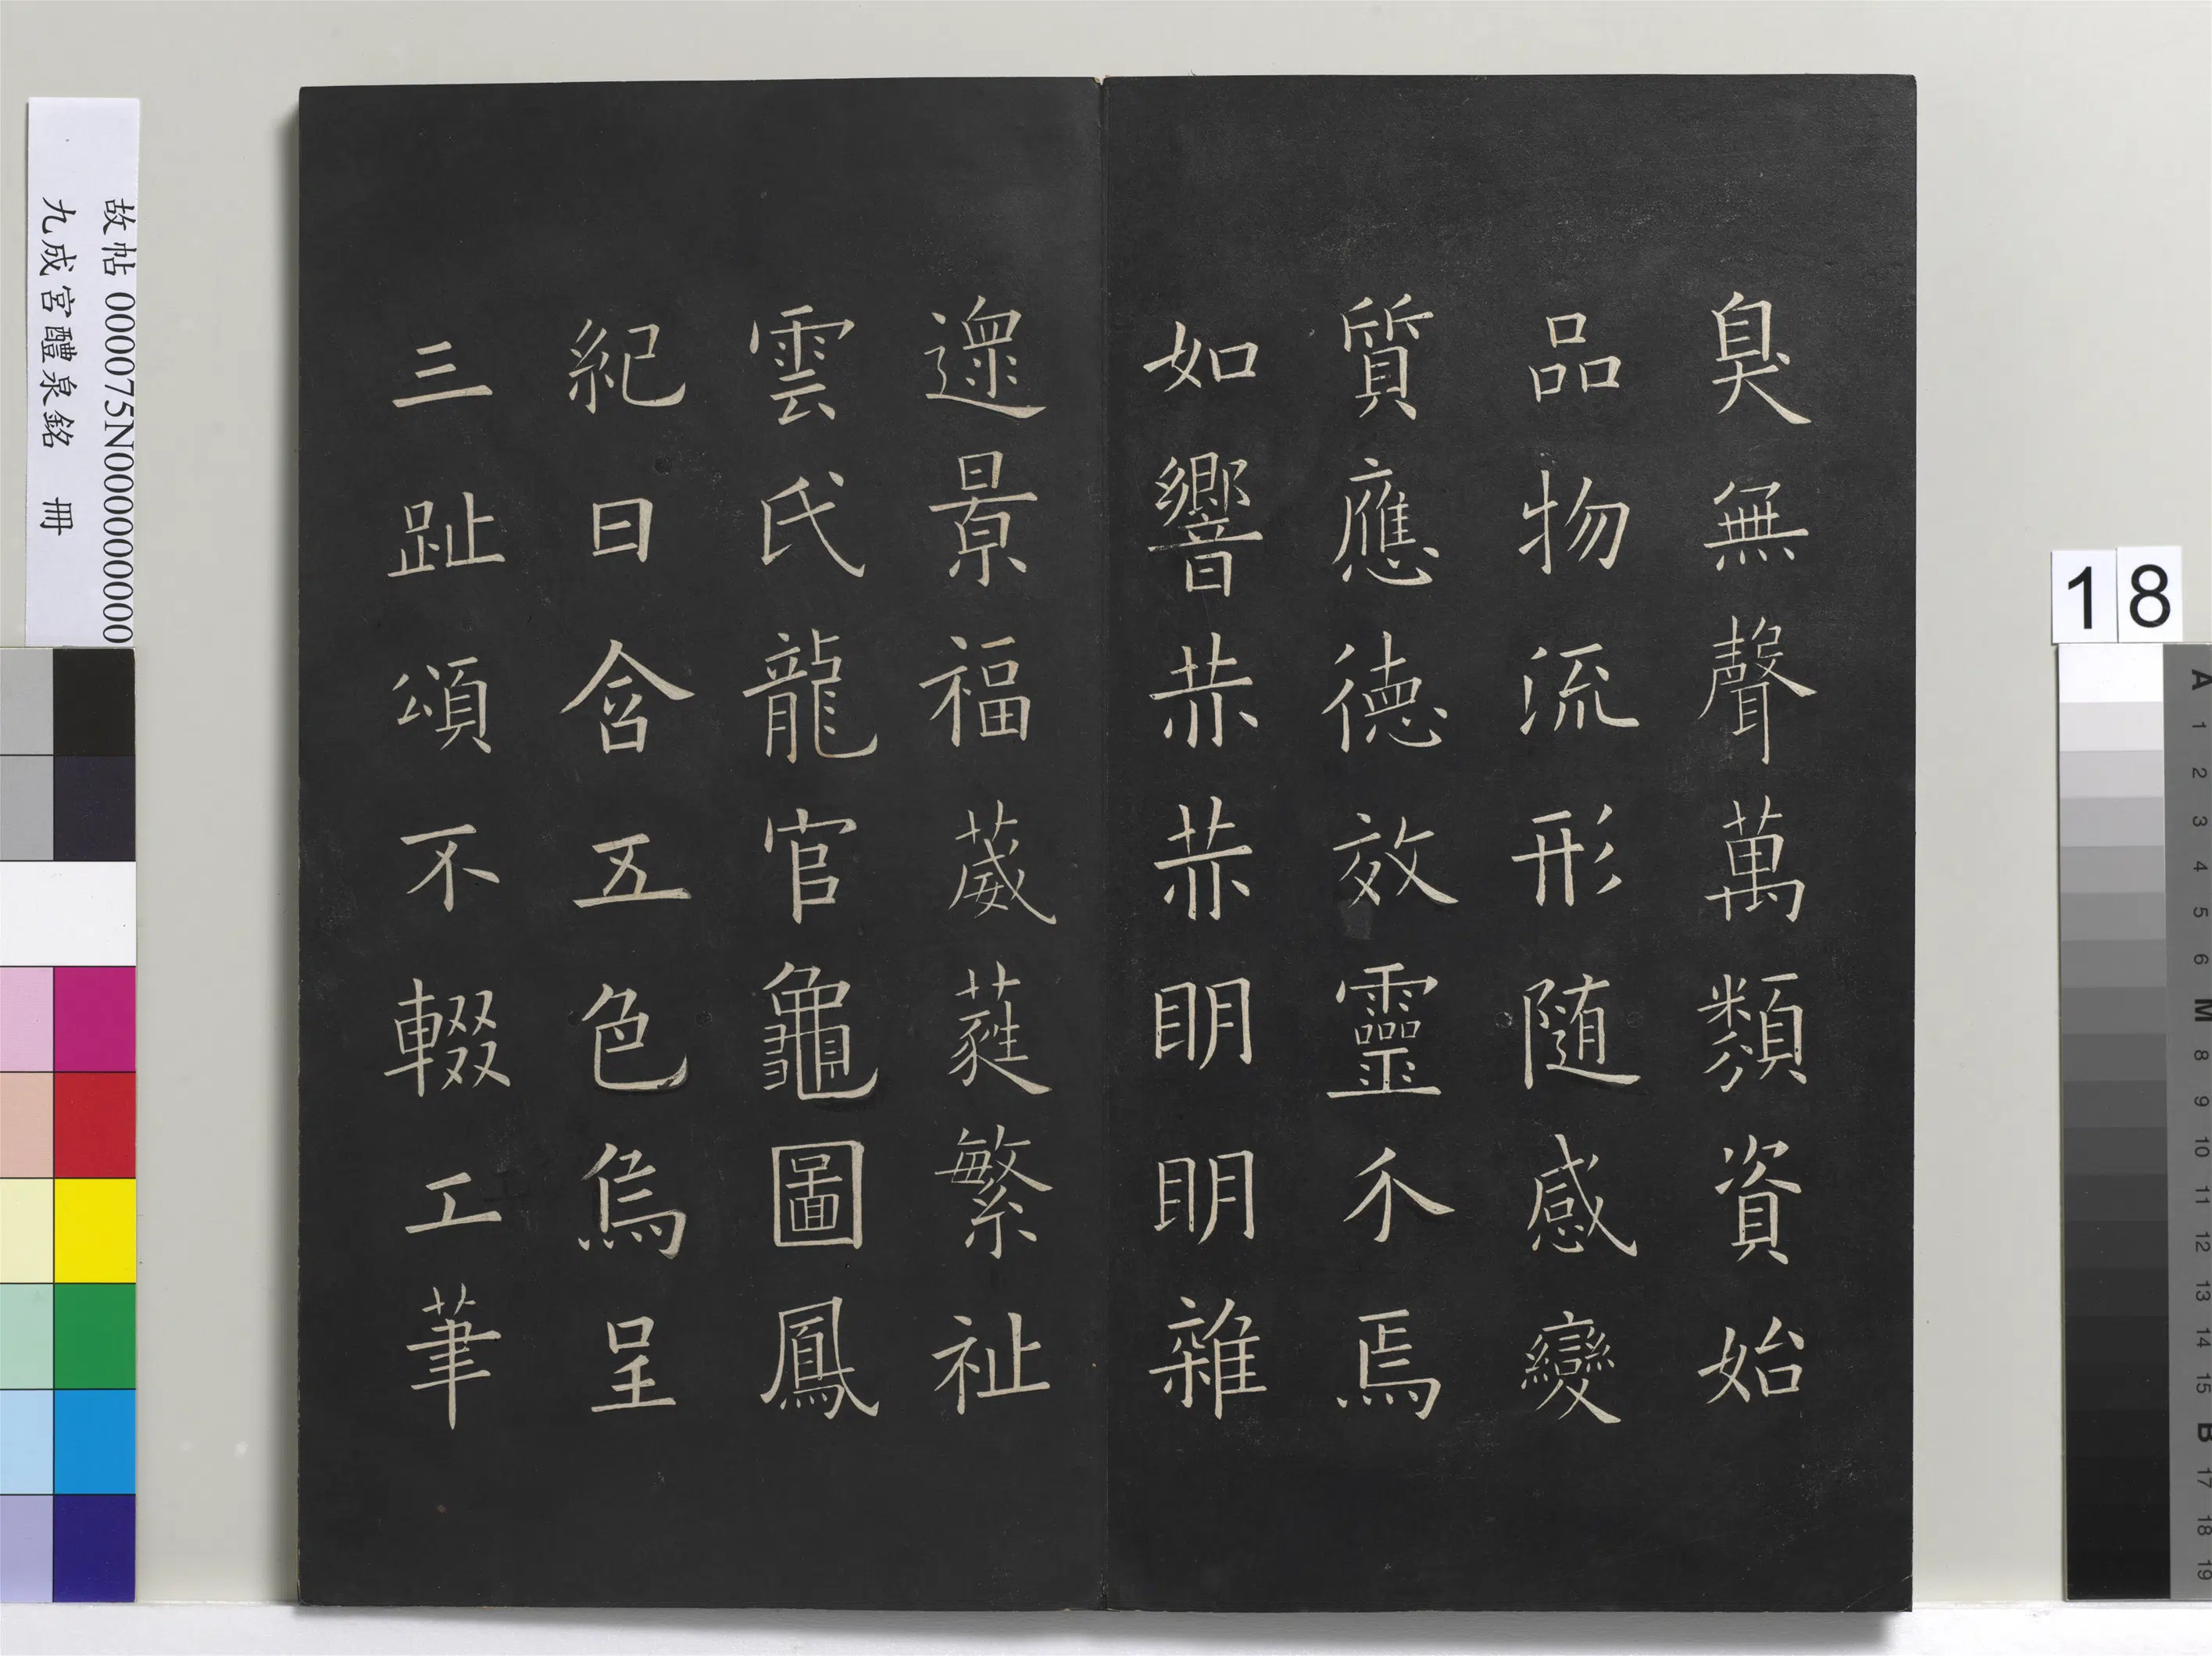 臭無聲萬類資始
品物流形随感變
質應德效靈介焉
如響赫赫明明雜
遝景福葳蕤繁祉
雲氏龍官龜圖鳳
紀日含五色烏呈
三趾頌不輟工筆
故帖 000075N000000000
九成宮醴泉銘 冊
18
A
1
2
3
4
5
6
M
8
9
10
11
12
13
14
15
B
17
18
19